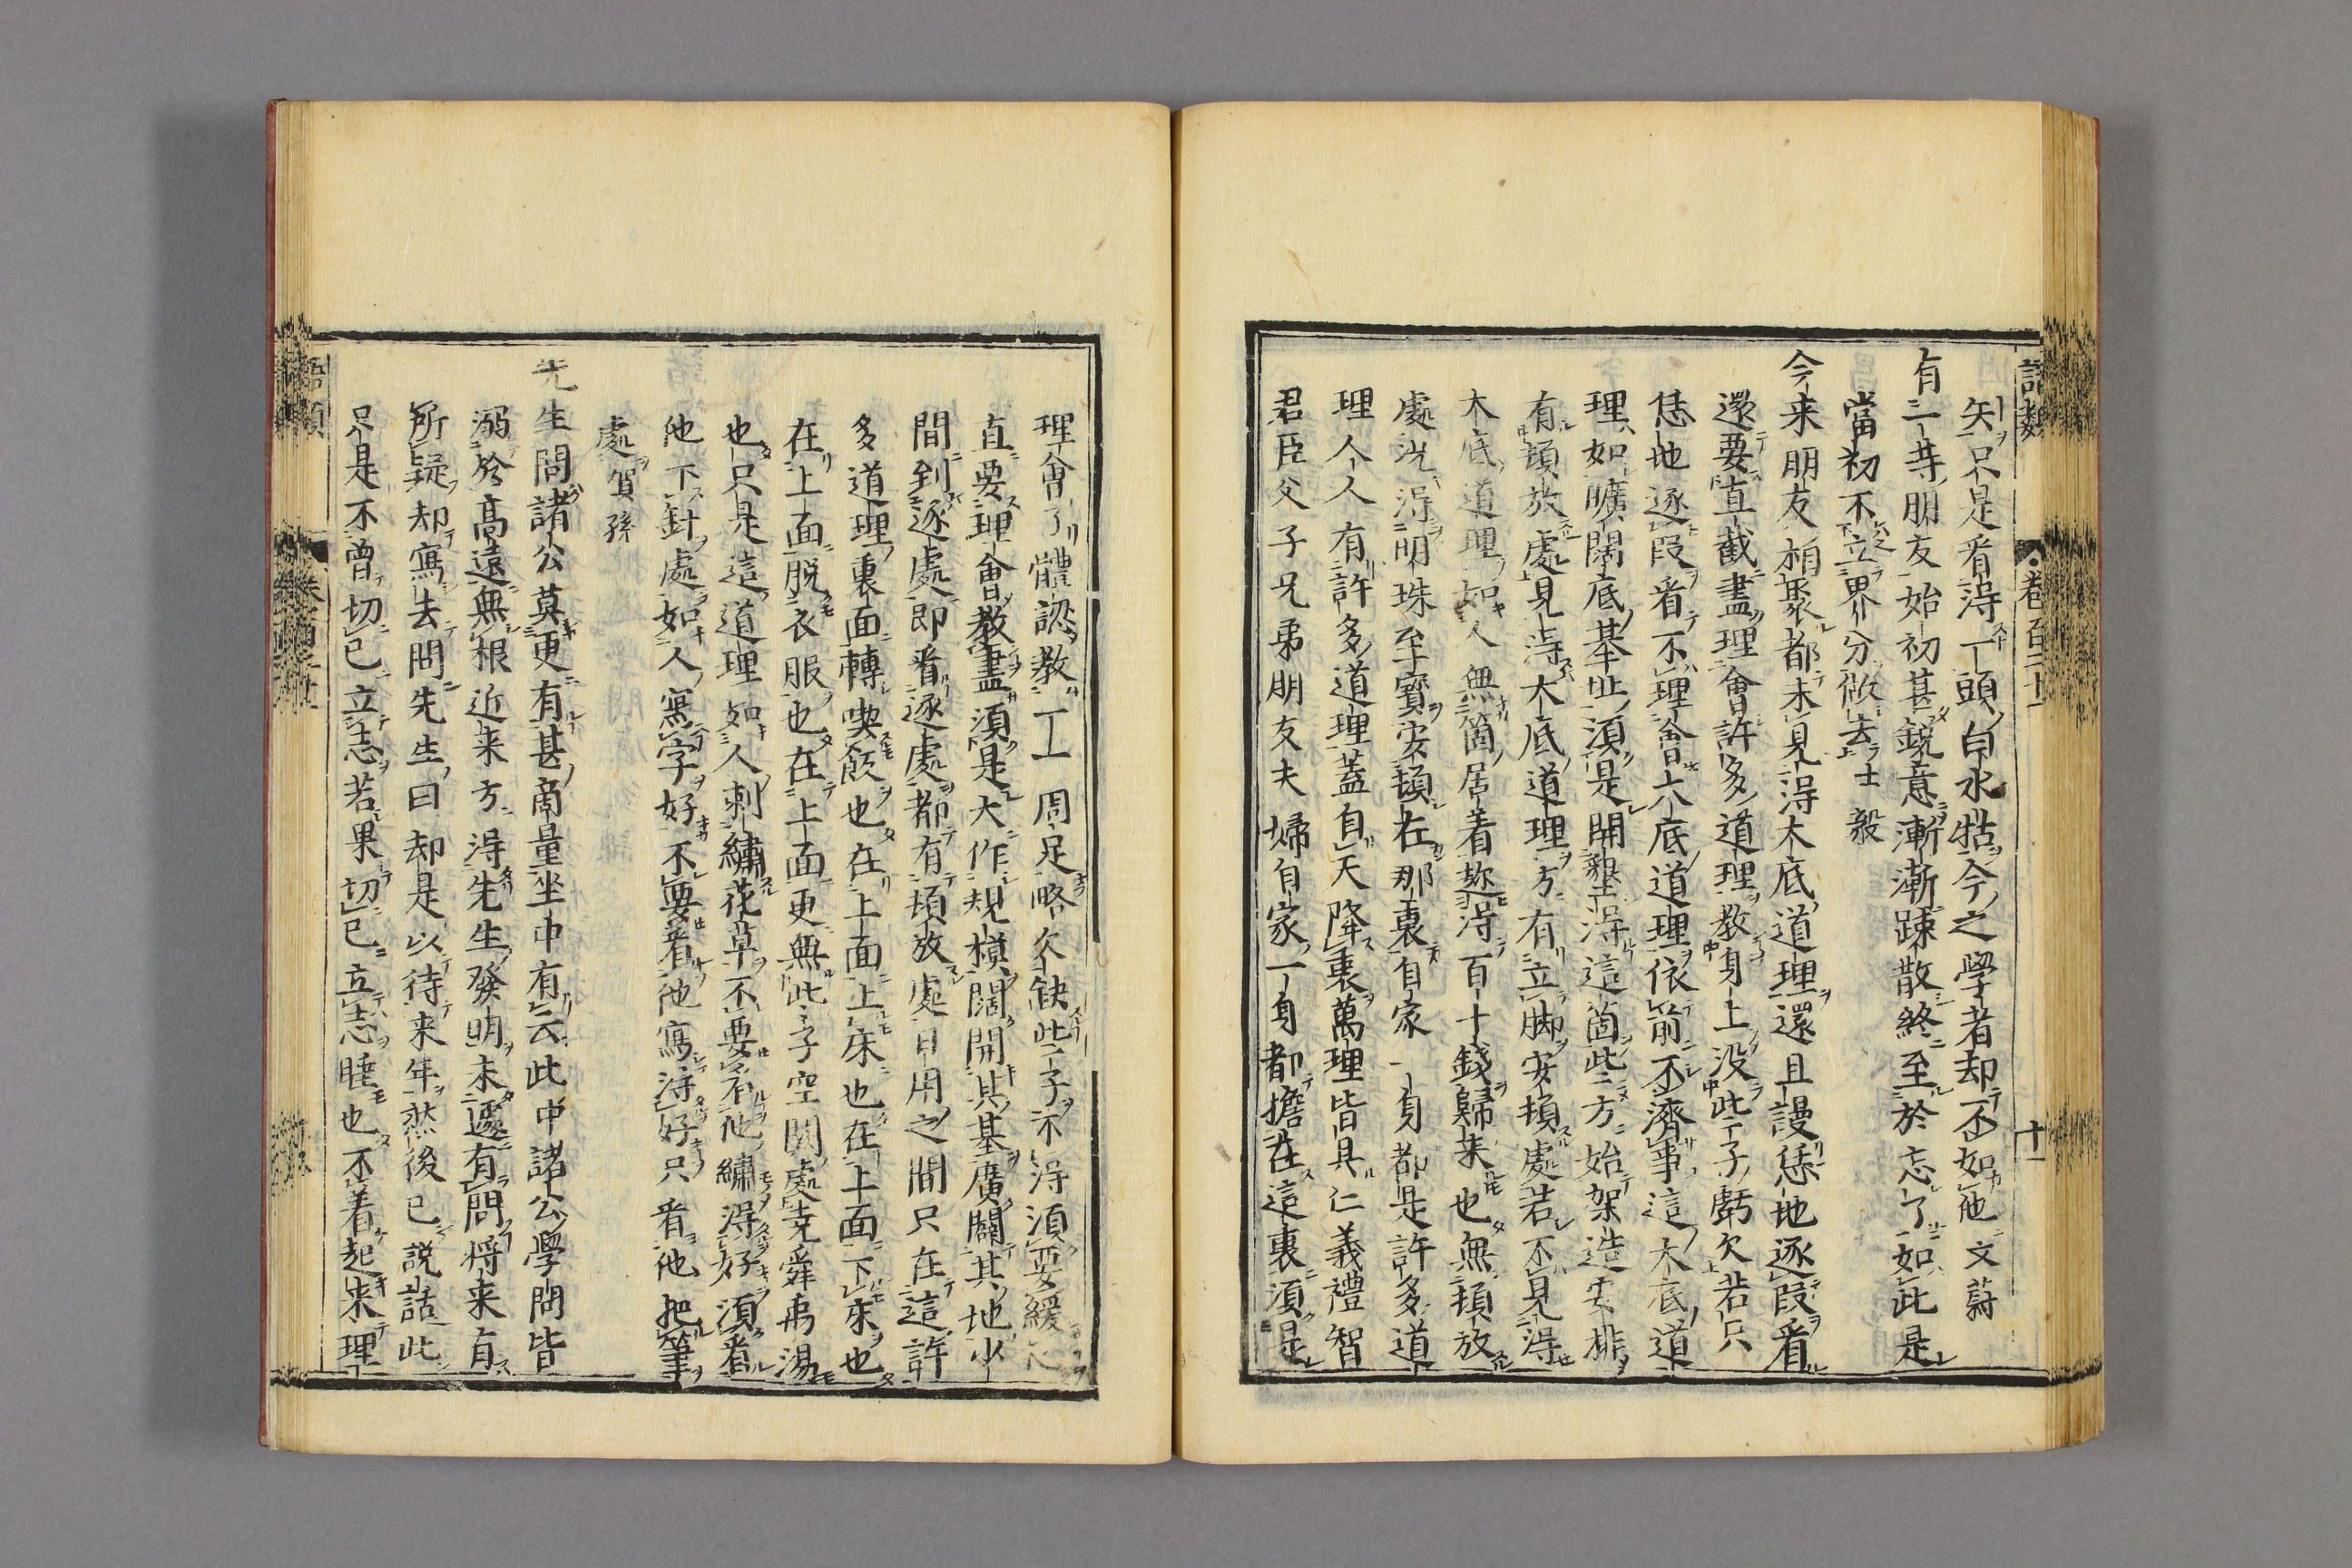 語類 卷百二十一 十一
矢只是看得一頭白水牯今之學者却不如他文蔚
有一等朋友始初甚鋭意漸漸踈散終至於忘了如此是
當初不立界分做去士毅
今来朋友相聚都未見得大底道理還且謾恁地逐段看
還要直截盡理會許多道理教身上没些子虧欠若只
恁地逐段看不理會大底道理依前不濟事這大底道
理如曠闊底基址須是開墾得這箇些方始架造安排
有頓放處見得大底道理方有立脚安頓處若不見得
大底道理如人無箇居着趂得百十錢歸来也無頓放
處况得明珠至寶安頓在那裏自家一身都是許多道
理人人有許多道理蓋自天降衷萬理皆具仁義禮智
君臣父子兄弟朋友夫婦自家一身都擔在這裏須是
理會了體認教一一周足略欠缺些子不得須要緩心
直要理會教盡須是大作規模闊開其基廣闢其地少
間到逐處即看逐處都有頓放處日用之間只在這許
多道理裏面轉喫飯也在上面上床也在上面下床也
在上面脱衣服也在上面更無些子空闕處堯舜禹湯
也只是這道理如人刺繡花草不要看他繡得好須看
他下針處如人寫字好不要看他寫得好只看他把筆
處賀孫
先生問諸公莫更有甚商量坐中有云此中諸公學問皆
溺於高遠無根近来方得先生發明未遽有問将来有
所疑却寫去問先生曰却是以待来年然後已説話此
只是不曾切已立志若果切已立志睡也不着起来理
語類